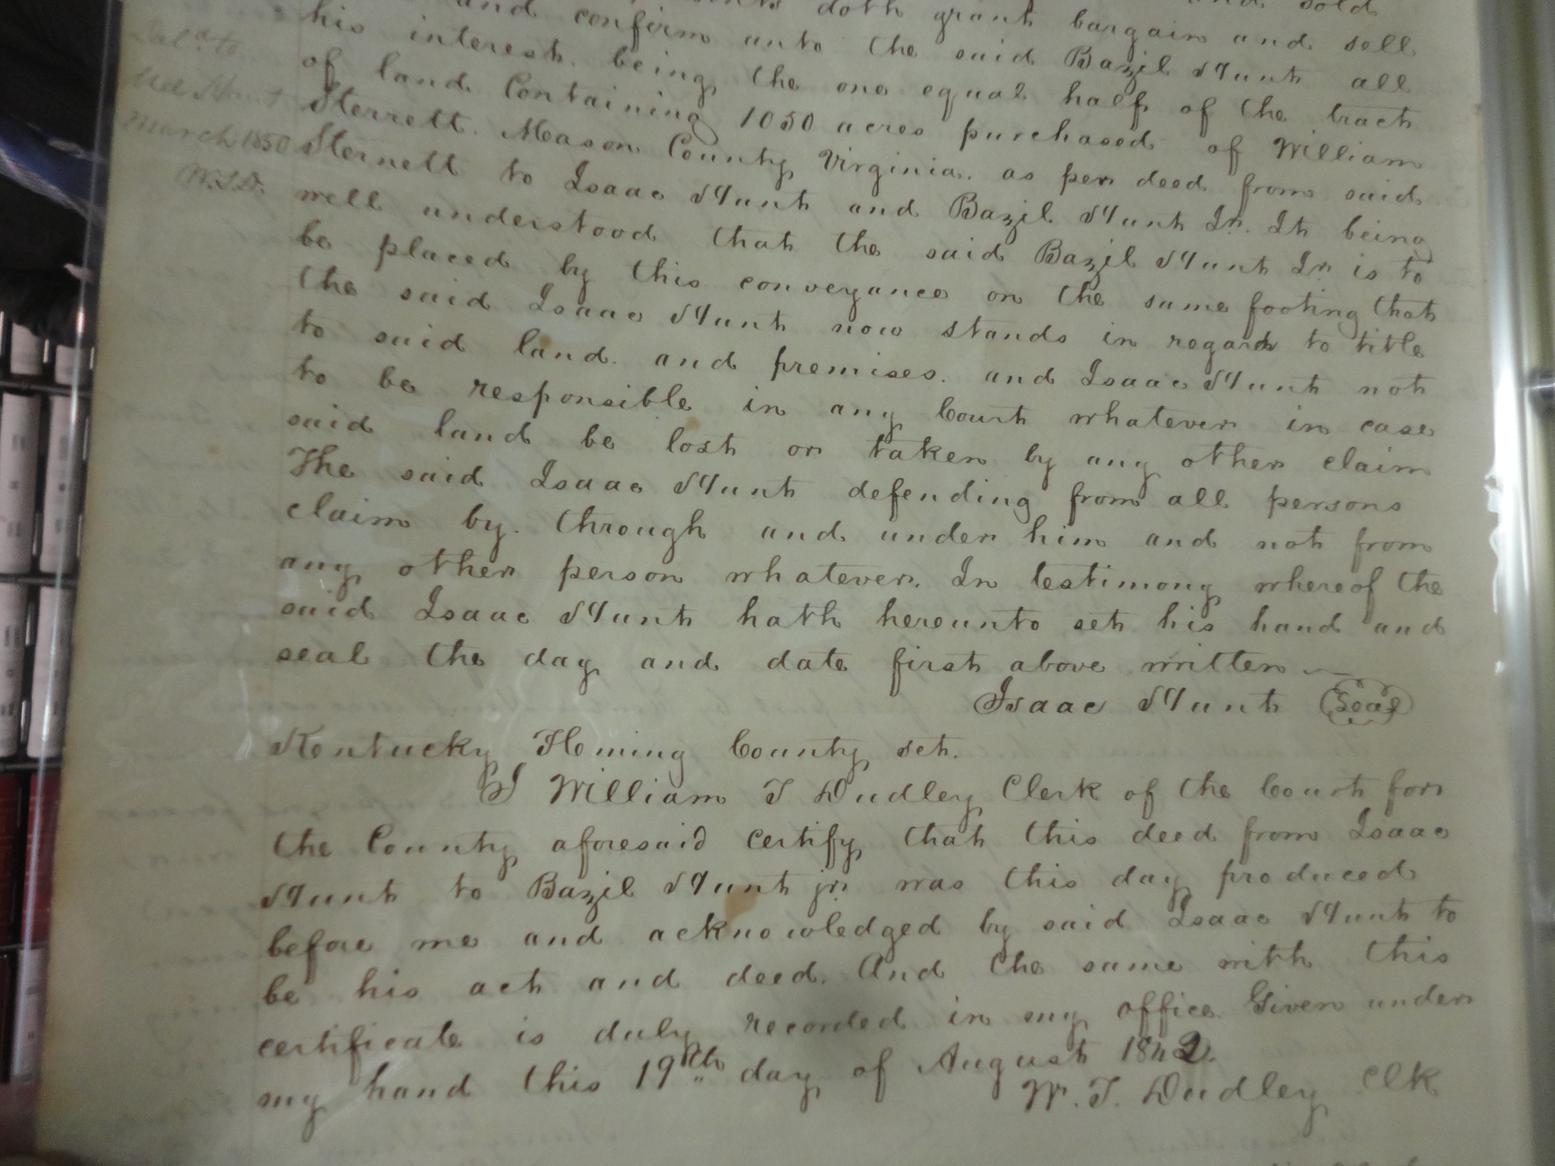 doth grant bargain and sell
and confirm unto the said Bazil Hunt all
his interest. being the one equal half of the tract
of land Containing 1050 acres purchased of William
Sterrett. Meason County Virginia. as per deed from said
Sternett to Isaac Hunt and Bazil Hunt Jr. It being
well understood that the said Bazil Hunt Jr is to
be placed by this conveyance on the same footing that
the said Isaac Hunt now stands in regard to title
to said land. and premises. and Isaac Hunt not
to be responsible in any Court whatever in case
said land be lost or taken by any other claim
The said Isaac Hunt defending from all persons
claim by. through and under him and not from
any other person whatever. In testimony whereof the
said Isaac Hunt hath hereunto set his hand and
seal the day and date first above written
Isaac Hunt Seal
Kentucky Fleming County sct.
I William T Dudley Clerk of the Court for
the County aforesaid certify that this deed from Isaac
Hunt to Bazil Hunt jr. was this day produced
before me and acknowledged by said Isaac Hunt to
be his act and deed. And the same with this
certificate is duly recorded in my office Given under
my hand this 19th day of August 1842.
W. T. Dudley Clk
Del.d to
Hunt
March 1850
W.T.D.